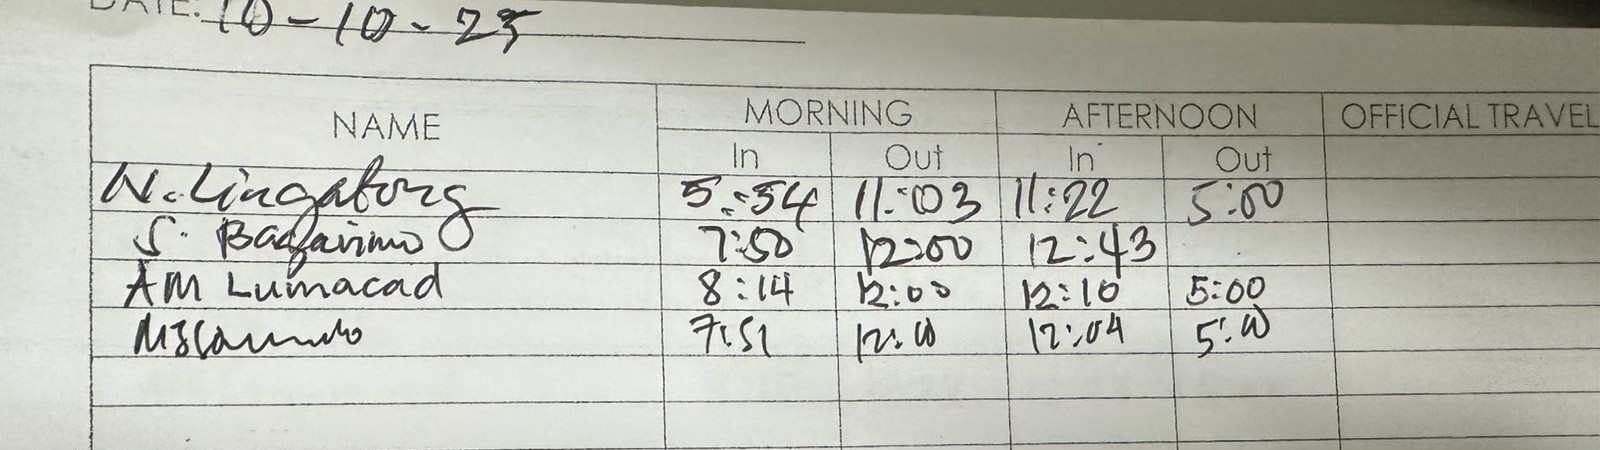 DATE: 10-10-25
NAME MORNING AFTERNOON OFFICIAL TRAVEL
In Out In Out
N. Lingatong 5:54 11:03 11:22 5:00
S. 7:50 12:00 12:43
AM Lumacad 8:14 12:00 12:10 5:00
7:51 12:00 12:04 5:00